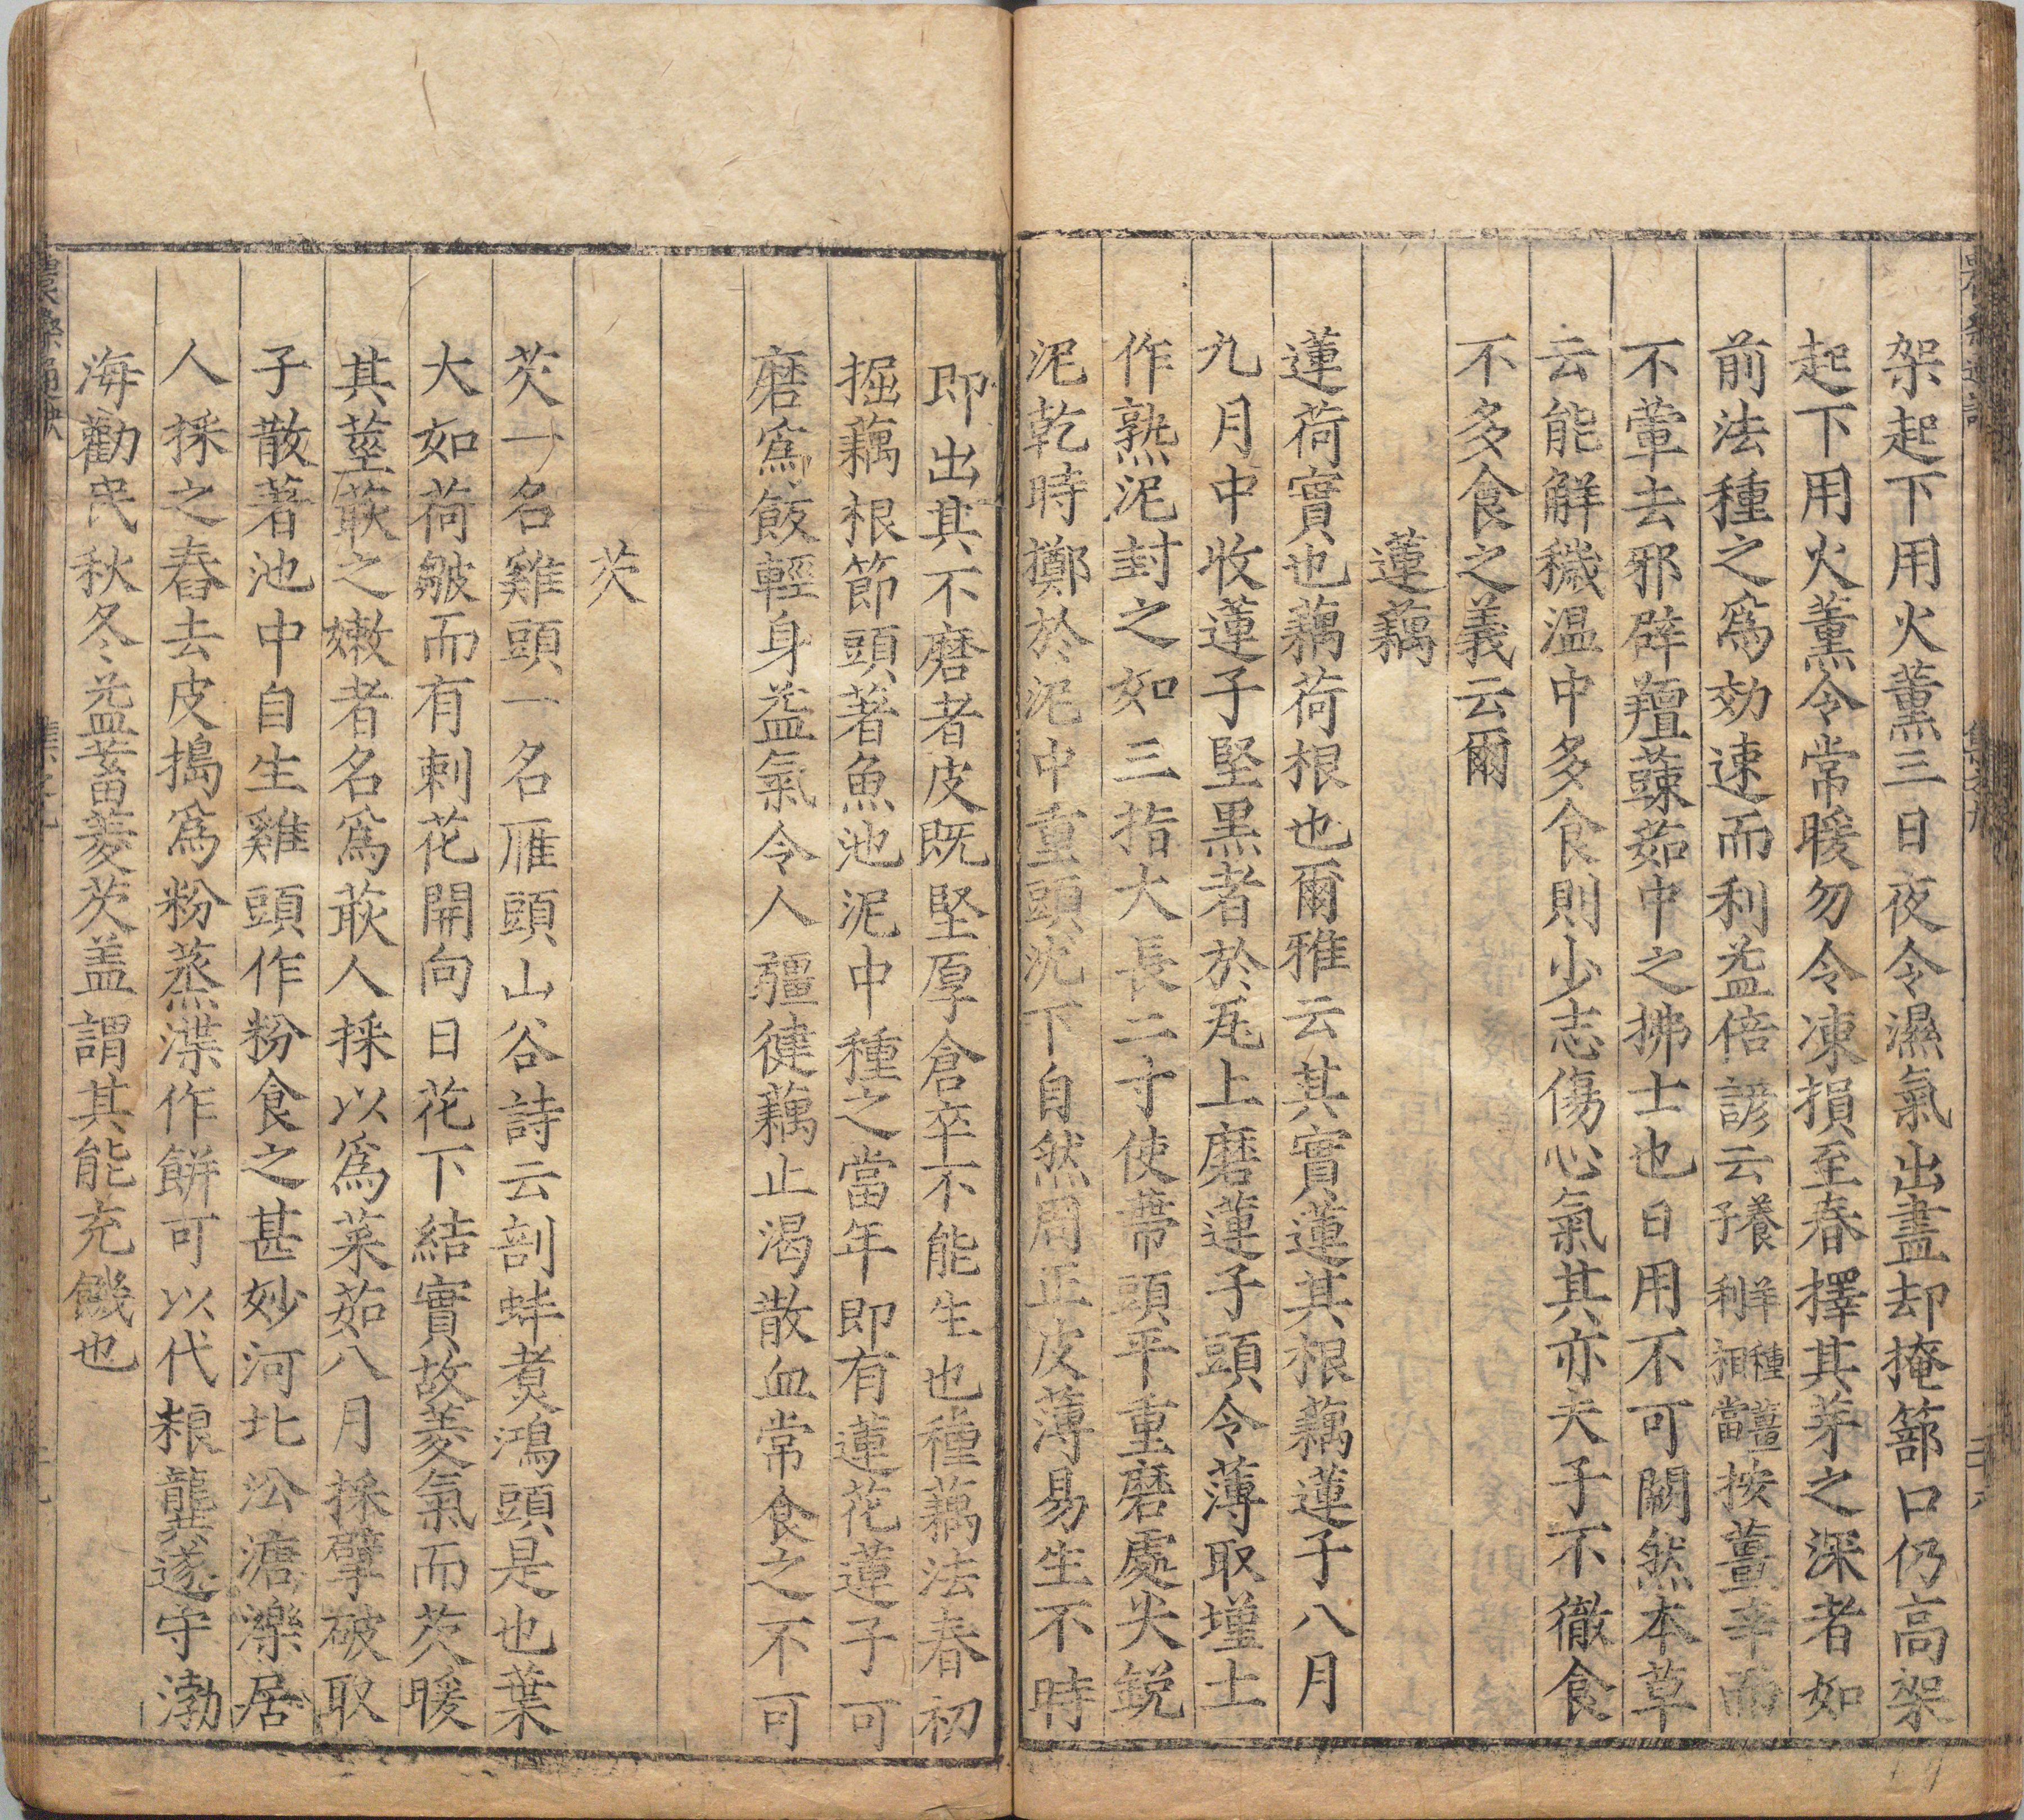 架起下用火薰三日夜令濕氣出盡却掩篰口仍高架
起下用火薰令常暖勿令凍損至春擇其芽之深者如
前法種之爲効速而利益倍諺云養羊種薑子利相當按薑辛而
不葷去邪辟羶蔬茹中之拂士也日用不可闕然本草
云能解穢温中多食則少志傷心氣其亦夫子不徹食
不多食之義云爾
蓮藕
蓮荷實也藕荷根也爾雅云其實蓮其根藕蓮子八月
九月中收蓮子堅黒者於瓦上磨蓮子頭令薄取墐土
作熟泥封之如三指大長二寸使蔕頭平重磨處尖銳
泥乾時擲於泥中重頭沉下自然周正皮薄易生不時
即出其不磨者皮既堅厚倉卒不能生也種藕法春初
掘藕根節頭著魚池泥中種之當年即有蓮花蓮子可
磨爲飯輕身益氣令人彊健藕止渴散血常食之不可
芡
芡一名雞頭一名雁頭山谷詩云剖蚌煑鴻頭是也葉
大如荷皺而有刺花開向日花下結實故菱氣而芡暖
其莖蔌之嫩者名爲蔌人採以爲菜茹八月採擘破取
子散著池中自生雞頭作粉食之甚妙河北沿溏濼居
人採之舂去皮搗爲粉蒸渫作餅可以代粮龔遂守渤
海勸民秋冬益蓄菱芡盖謂其能充饑也